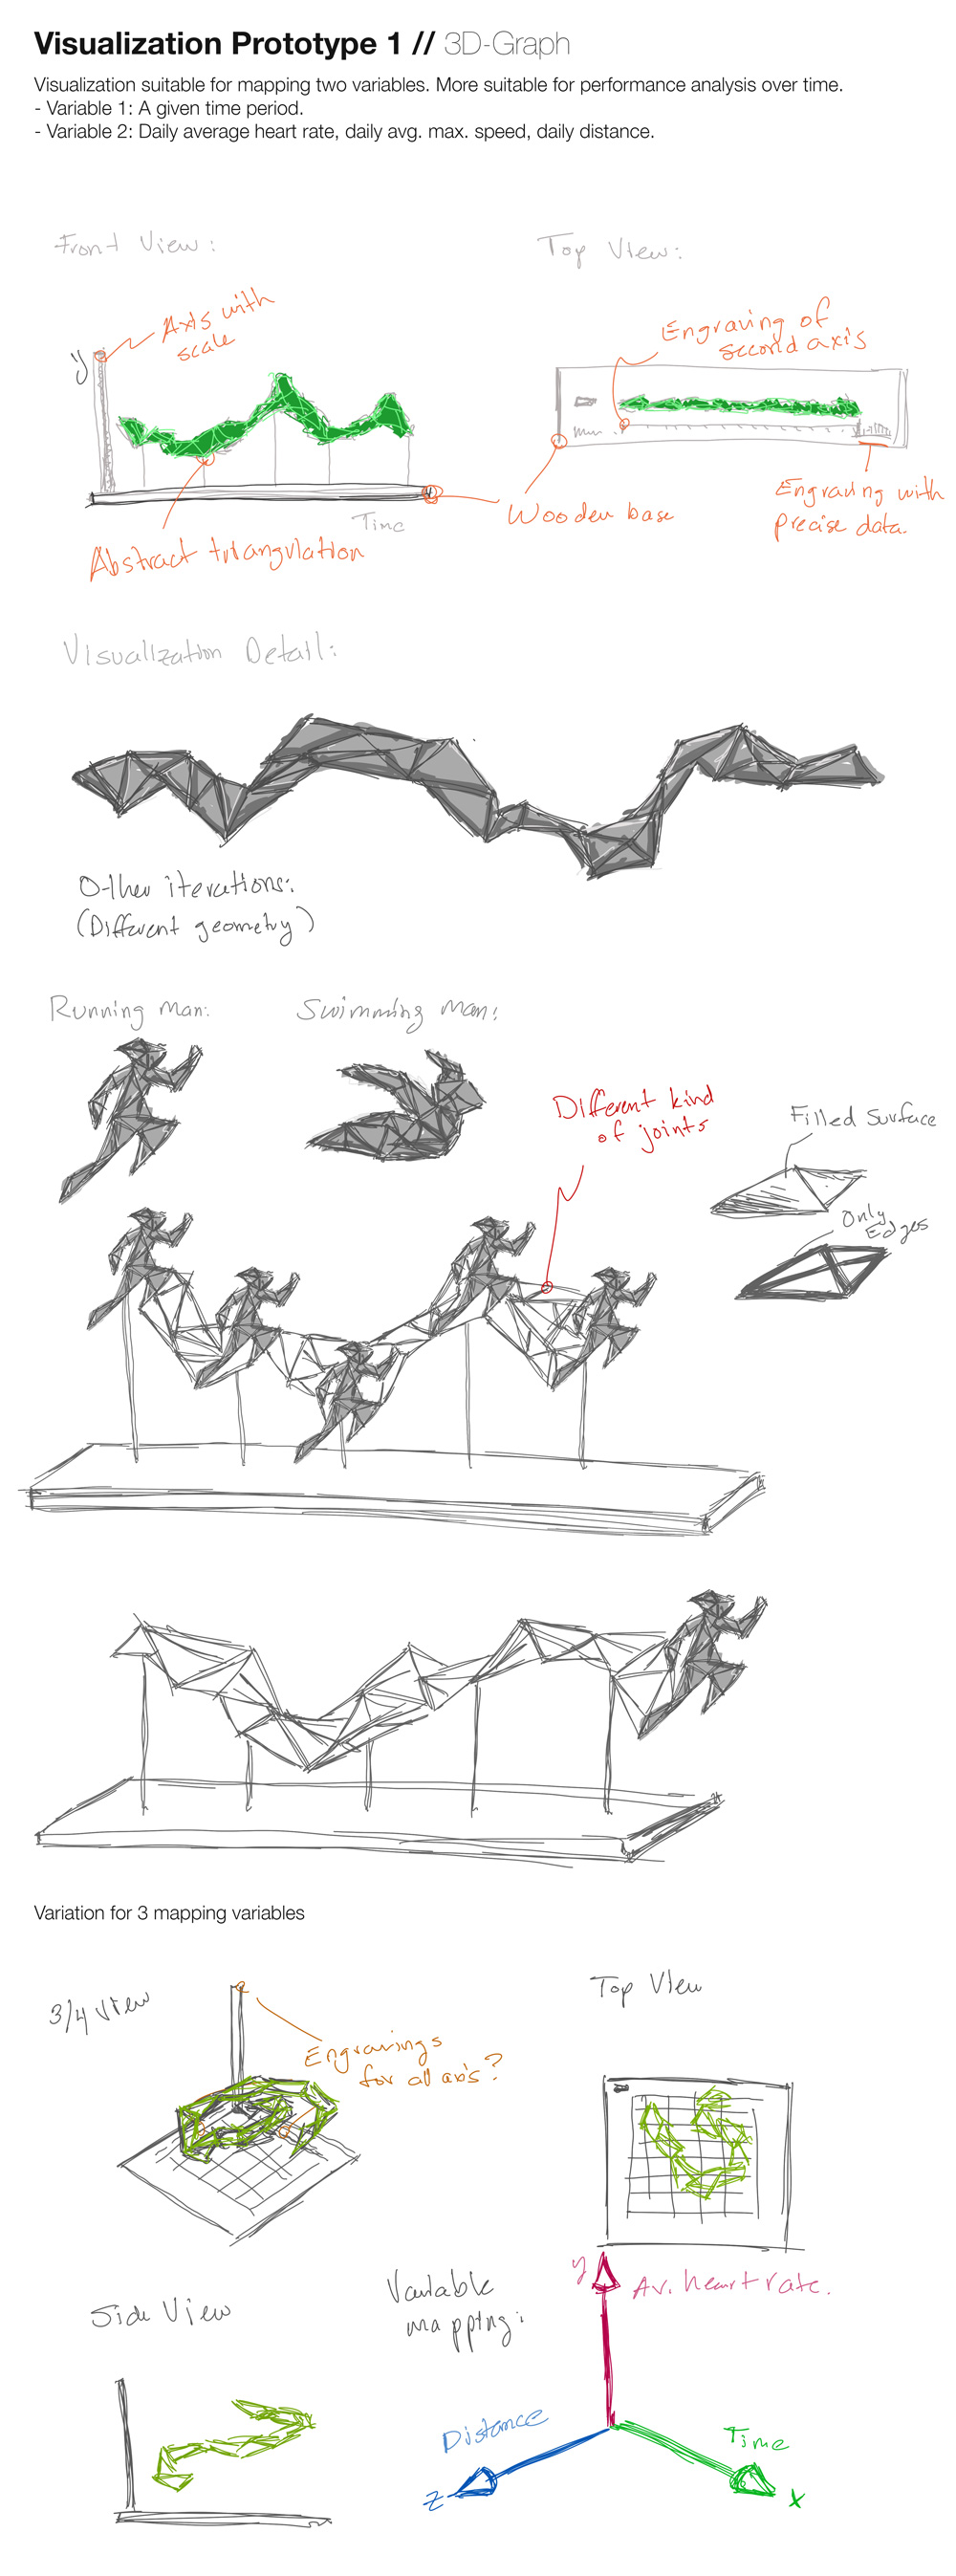 Visualization Prototype 1 // 3D-Graph
Visualization suitable for mapping two variables. More suitable for performance analysis over time.
- Variable 1: A given time period.
- Variable 2: Daily average heart rate, daily avg. max. speed, daily distance.
Front View:
Top View:
Axis with
scale
y
Time
Abstract triangulation
Engraving of
second axis
Wooden base
Engraving with
precise data.
Visualization Detail:
Other iterations:
(Different geometry)
Running man:
Swimming man:
Different kind
of joints
Filled Surface
Only
Edges
Variation for 3 mapping variables
3/4 View
Engravings
for all axis?
Top View
Side View
Variable
mapping:
y
Av. heart rate.
Distance
z
Time
x